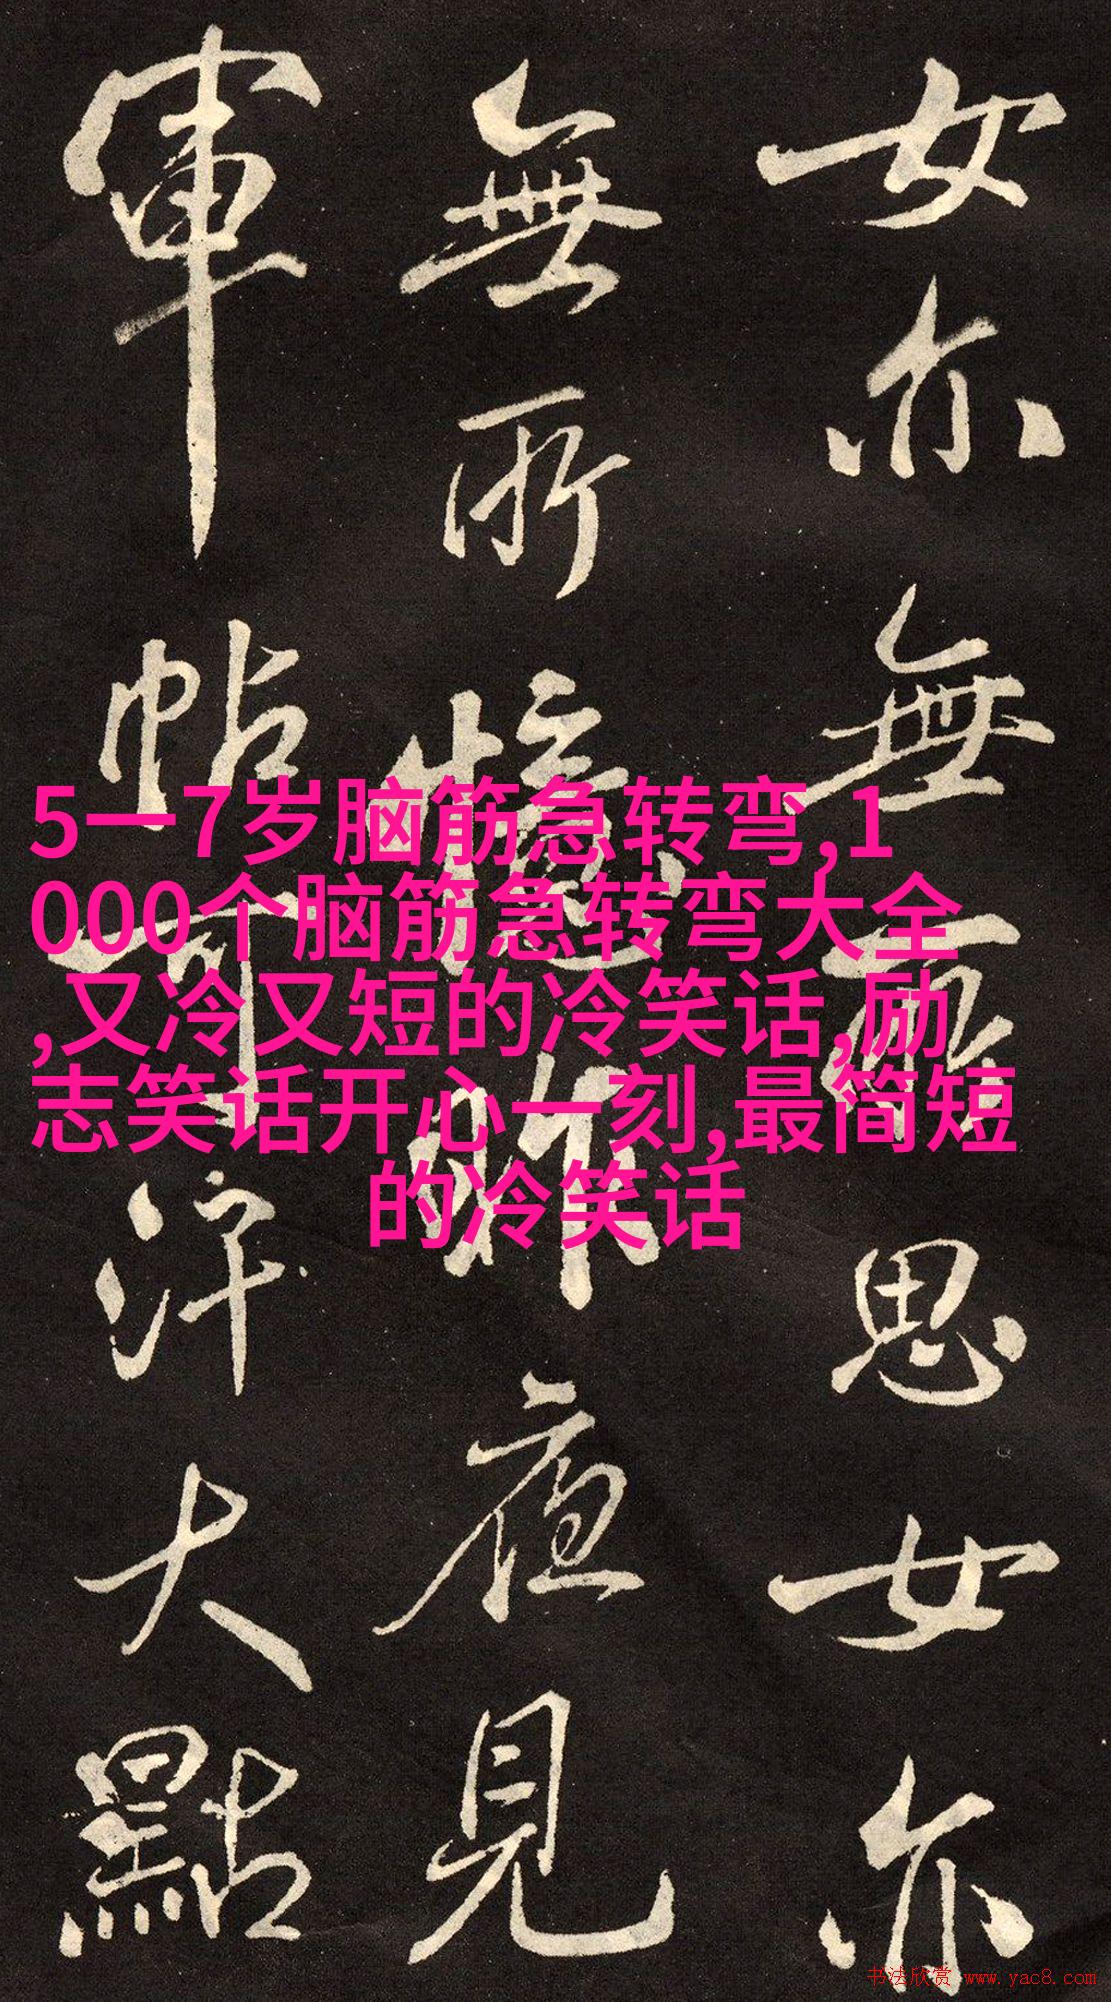 女亦無所思女亦
無所憶昨夜見
軍帖可汗大點
5一7岁脑筋急转弯,1
000个脑筋急转弯大全
,又冷又短的冷笑话,励
志笑话开心一刻,最简短
的冷笑话
书法欣赏 www.yac8.com